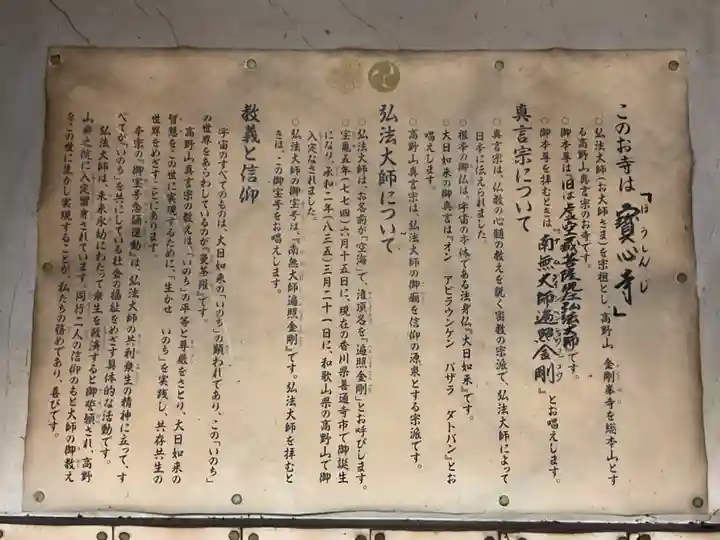 このお寺は「寳心寺」
ほうしんじ
○弘法大師(お大師さま)を宗祖とし、高野山 金剛峯寺を総本山とす
る高野山真言宗のお寺です。
○御本尊は「旧は虚空蔵菩薩現在弘法大師です。
○御本尊を拝むときは『南無大師遍照金剛』とお唱えします。
真言宗について
○真言宗は、仏教の心髄の教えを説く密教の宗派で、弘法大師によって
日本に伝えられました。
○根本の御仏は、宇宙の本体である法身仏『大日如来』です。
○大日如来の御真言は『オン アビラウンケン バザラ ダトバン』とお
唱えします。
○高野山真言宗は、弘法大師の御廟を信仰の源泉とする宗派です。
弘法大師について
○弘法大師は、お名前が「空海」で、灌頂名を「遍照金剛」とお呼びします。
○宝亀五年(七七四)六月十五日に、現在の香川県善通寺市で御誕生
になり、承和二年(八三五)三月二十一日に、和歌山県の高野山で御
入定なされました。
○弘法大師の御宝号は、『南無大師遍照金剛』です。弘法大師を拝むと
きは、この御宝号をお唱えします。
教義と信仰
宇宙のすべてのものは、大日如来の「いのち」の顕われであり、この「いのち」
の世界をあらわしているのが「曼荼羅」です。
高野山真言宗の教えは、「いのち」の平等と尊厳をさとり、大日如来の
智慧をこの世に実現するために、「生かせ いのち」を実践し、共存共生の
世界をめざすことにあります。
本宗の「御宝号念誦運動」は、弘法大師の共利衆生の精神に立って、す
べてが「いのち」を共にしている社会の福祉をめざす具体的な活動です。
弘法大師は、未来永劫にわたって衆生を救済すると御誓願され、高野
山奥之院に入定留身されています。同行二人の信仰のもと大師の御教え
をこの世に生かし実現することが、私たちの務めであり、喜びです。